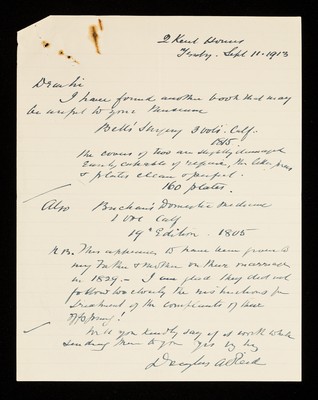 2 Kent House
Tenby. Sept 11 - 1913
Dear Sir
I have found another book that may
be useful to your Museum
Bell's Surgery 2 vols. Calf.
1815.
The covers of Two are slightly damaged
Easily capable of repair, the title pages
& plates clean & perfect.
160 plates.
Also Buchan's Domestic Medicine
1 vol Calf
19th Edition. 1805
N.B. This appears to have been given to
my Father & Mother on their marriage
in 1829 - I am glad they did not
follow too closely the instructions for
treatment of the complaints of their
offspring!
Will you kindly say if it worth while
sending them to you
Douglas A Reid